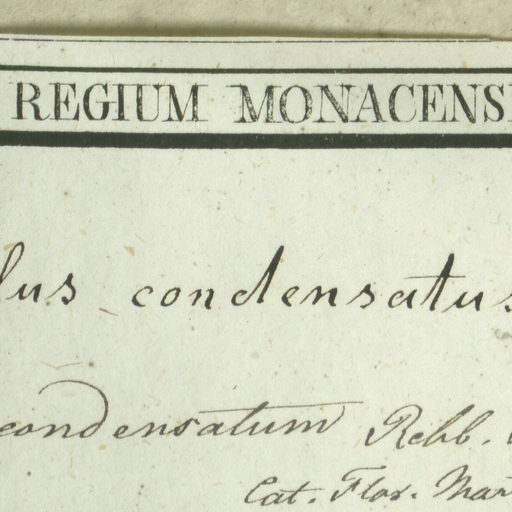 REGIUM MONACENS
lus condensatus
condensatum Rchb.
Cat. Flor. Mar